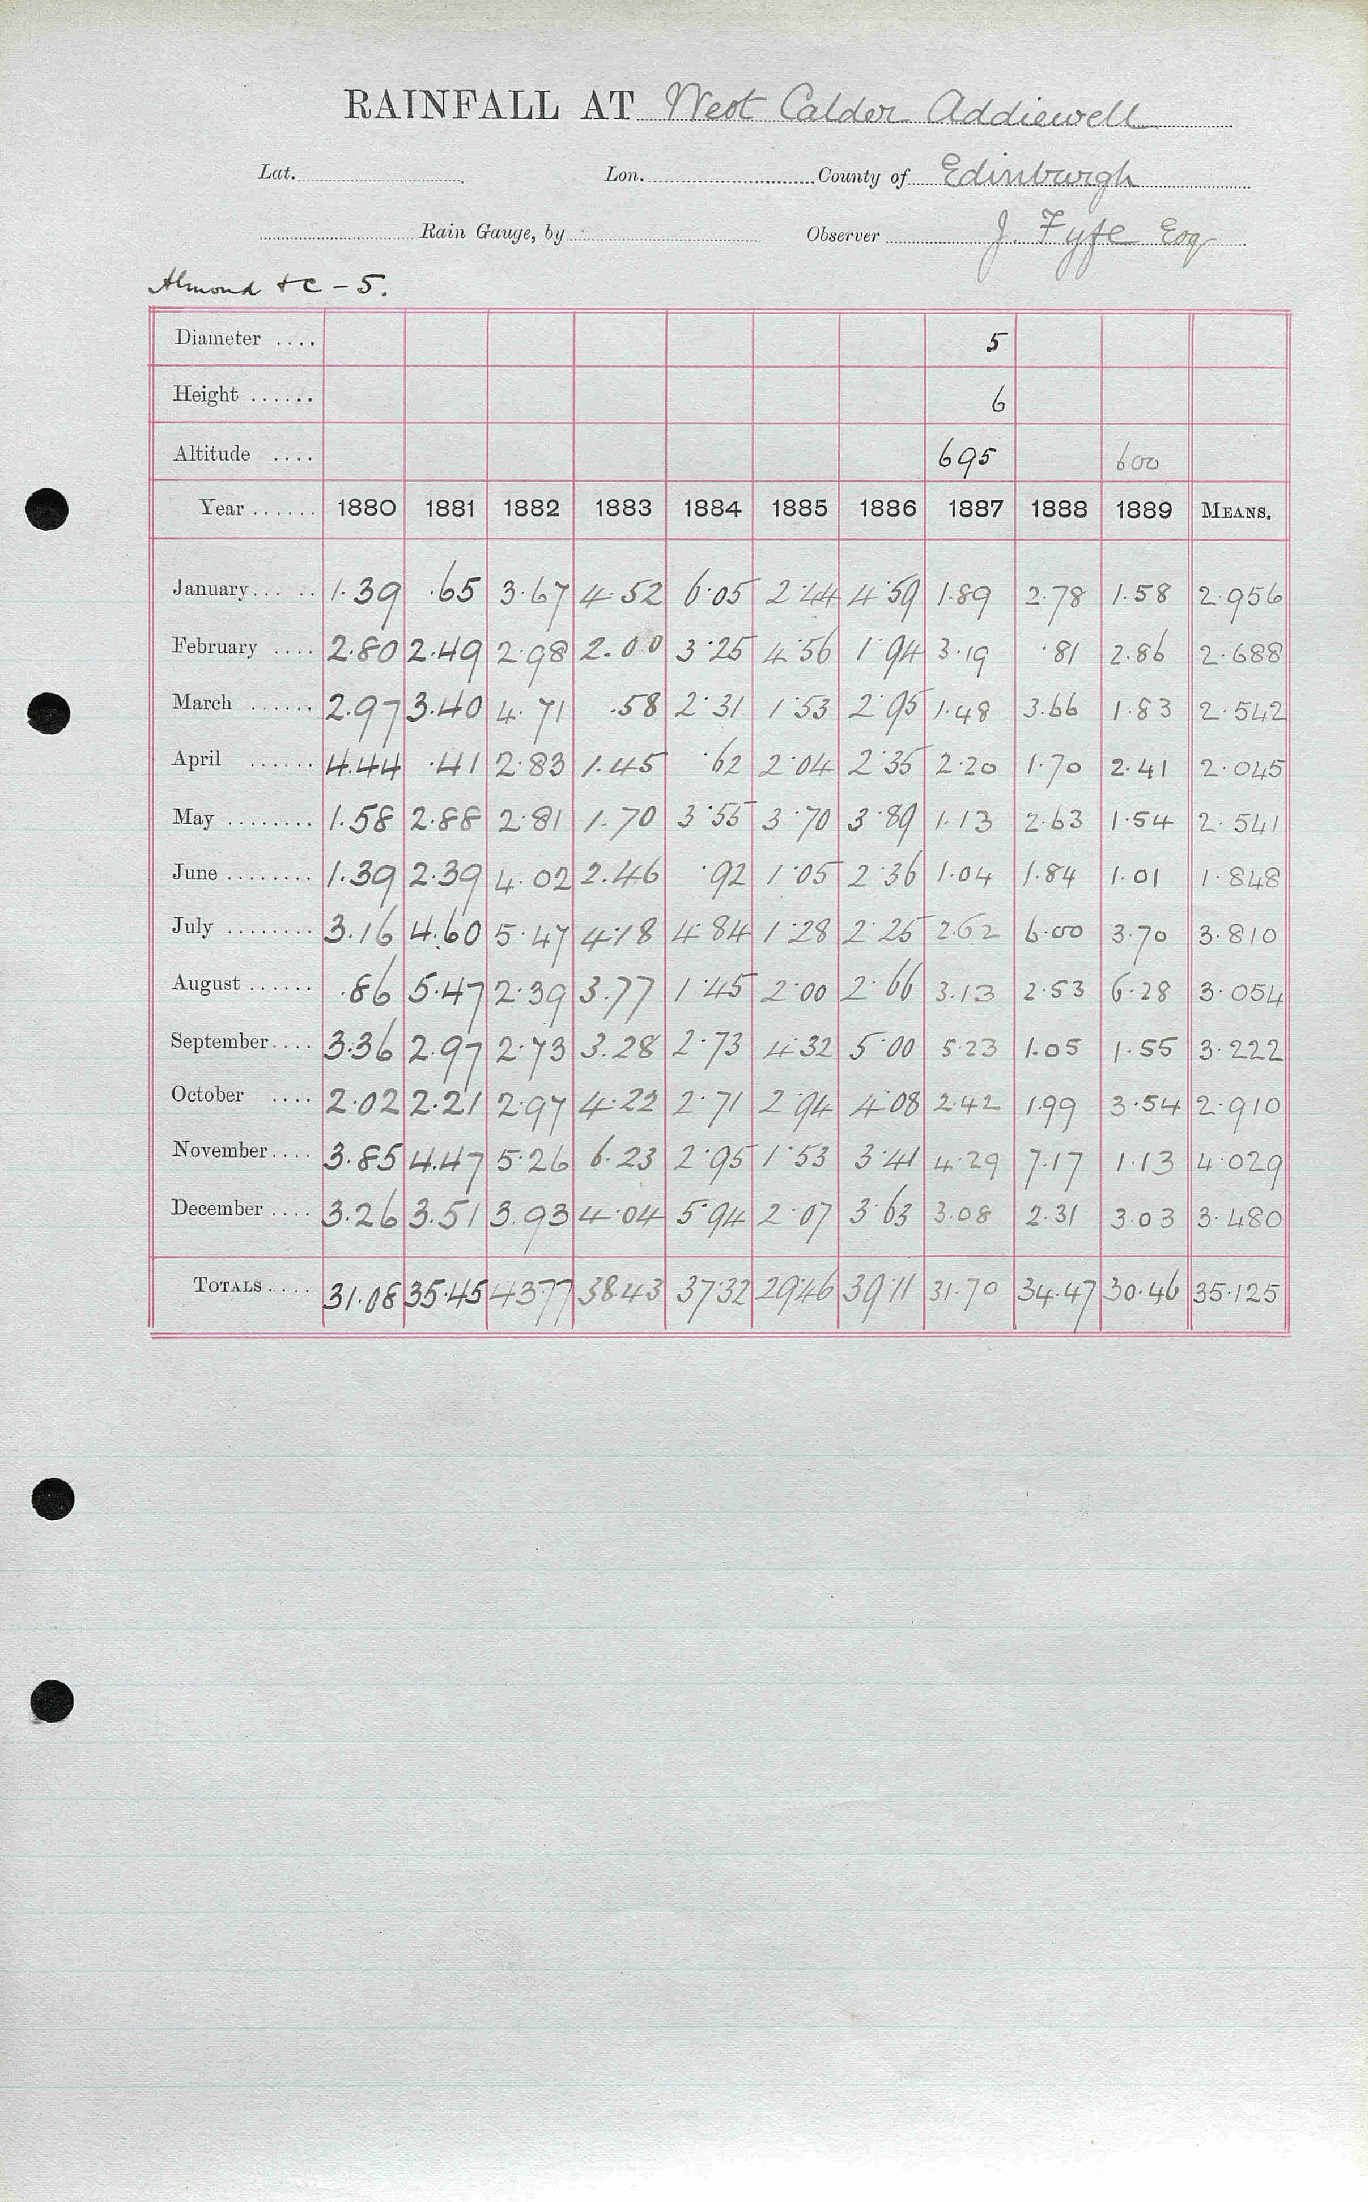 RAINFALL AT West Calder Addiewell
Lat. Lon. County of Edinburgh
Rain Gauge, by Observer J. Fyfe Esq
Almond &c - 5.
Diameter .... 5
Height ...... 6
Altitude .... 695 600
Year ...... 1880 1881 1882 1883 1884 1885 1886 1887 1888 1889 MEANS.
January ... .. 1.39 .65 3.67 4.52 6.05 2.44 4.59 1.89 2.78 1.58 2.956
February .... 2.80 2.49 2.98 2.00 3.25 4.56 1.94 3.19 .81 2.86 2.688
March ...... 2.97 3.40 4.71 .58 2.31 1.53 2.95 1.48 3.66 1.83 2.542
April ...... 4.44 .41 2.83 1.45 .62 2.04 2.35 2.20 1.70 2.41 2.045
May ........ 1.58 2.88 2.81 1.70 3.55 3.70 3.89 1.13 2.63 1.54 2.541
June ........ 1.39 2.39 4.02 2.46 .92 1.05 2.36 1.04 1.84 1.01 1.848
July ........ 3.16 4.60 5.47 4.18 4.84 1.28 2.25 2.62 6.00 3.70 3.810
August ...... .86 5.47 2.39 3.77 1.45 2.00 2.66 3.13 2.53 6.28 3.054
September .... 3.36 2.97 2.73 3.28 2.73 4.32 5.00 5.23 1.05 1.55 3.222
October .... 2.02 2.21 2.97 4.22 2.71 2.94 4.08 2.42 1.99 3.54 2.910
November .... 3.85 4.47 5.26 6.23 2.95 1.53 3.41 4.29 7.17 1.13 4.029
December .... 3.26 3.51 3.93 4.04 5.94 2.07 3.63 3.08 2.31 3.03 3.480
TOTALS .... 31.08 35.45 43.77 38.43 37.32 29.46 39.11 31.70 34.47 30.46 35.125